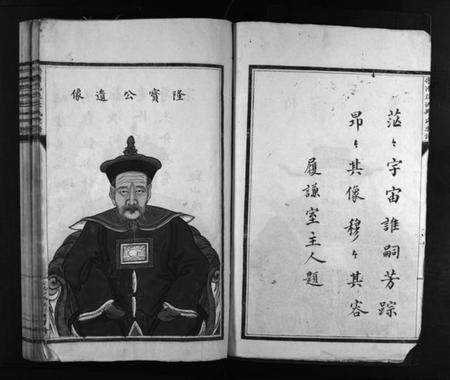 隆寶公遺像
茫々宇宙誰嗣芳踪
昂々其像穆々其容
履謙室主人題